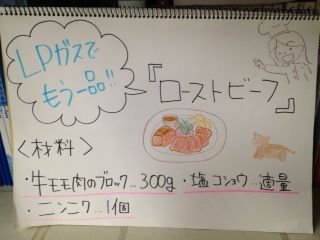 LPガスで
もう一品!!
『ローストビーフ』
<材料>
・牛モモ肉のブロック…300g ・塩コショウ…適量
・ニンニク…1個